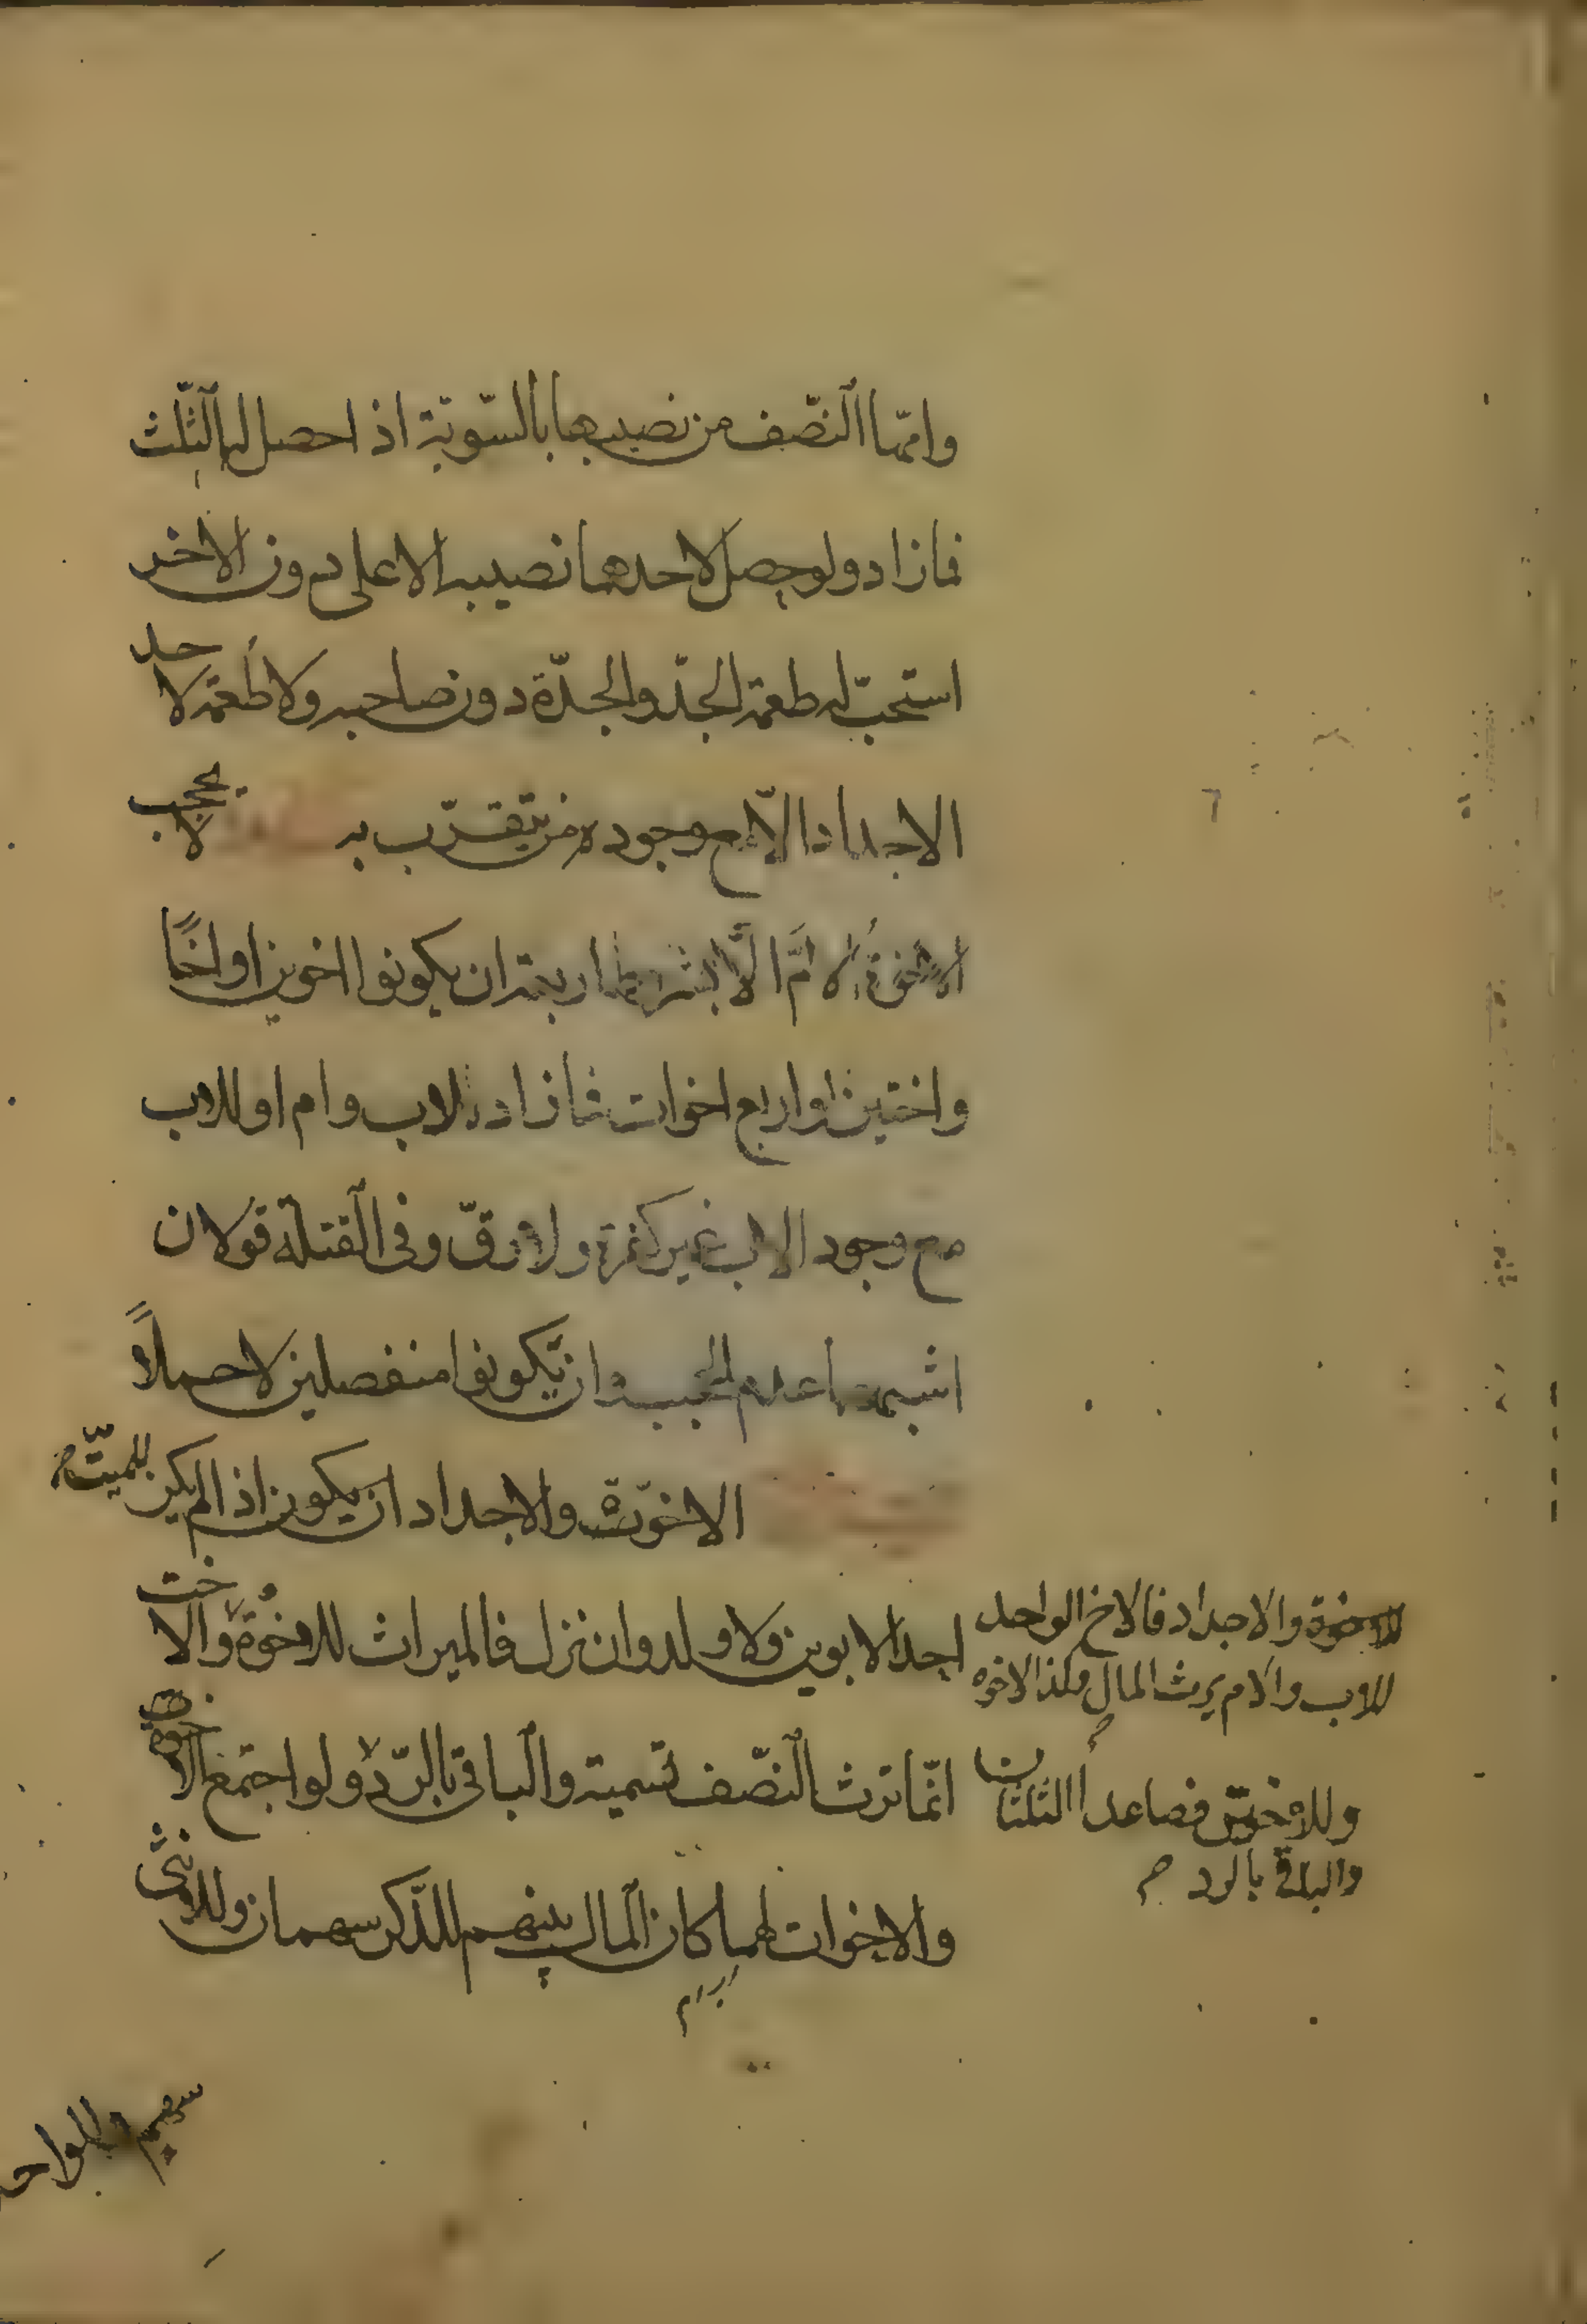 وامّها النّصف من نصيبها بالسّويّة اذا حصل لها الثّلث
فما زاد ولو حصل لاحدهما نصيبه الاعلى دون الاخر
استحبّ له طعمة الجدّ والجدّة دون صاحبه ولا طعمة لاحد
الاجداد الّا مع وجود من يتقرّب به لا يحجب
الاخوة الامّ الّا بشروط اربعة ان يكونوا اخوين او اخًا
واختين او اربع اخوات فما زاد للاب وام او للاب
مع وجود الاب غير كفرة ولا رقّ وفى القتلة قولان
اشبههما عدم الحجب وان يكونوا منفصلين لا حملاً
الاخوة والاجداد ان يكون اذا لم يكن للميّت
احد الابوين ولا ولد وان نزل فالميراث للاخوة والاخت
انّما ترث النّصف تسمية والباقى بالرّد ولو اجتمع الاخوة
والاخوات لهما كان المال بينهم للذّكر سهمان وللانثى
للاخوة والاجداد فالاخ الواحد
للاب والام يرث المال وكذا الاخوه
وللاختين فصاعدا الثلثان
والباقى بالرد
سهم وللواحد